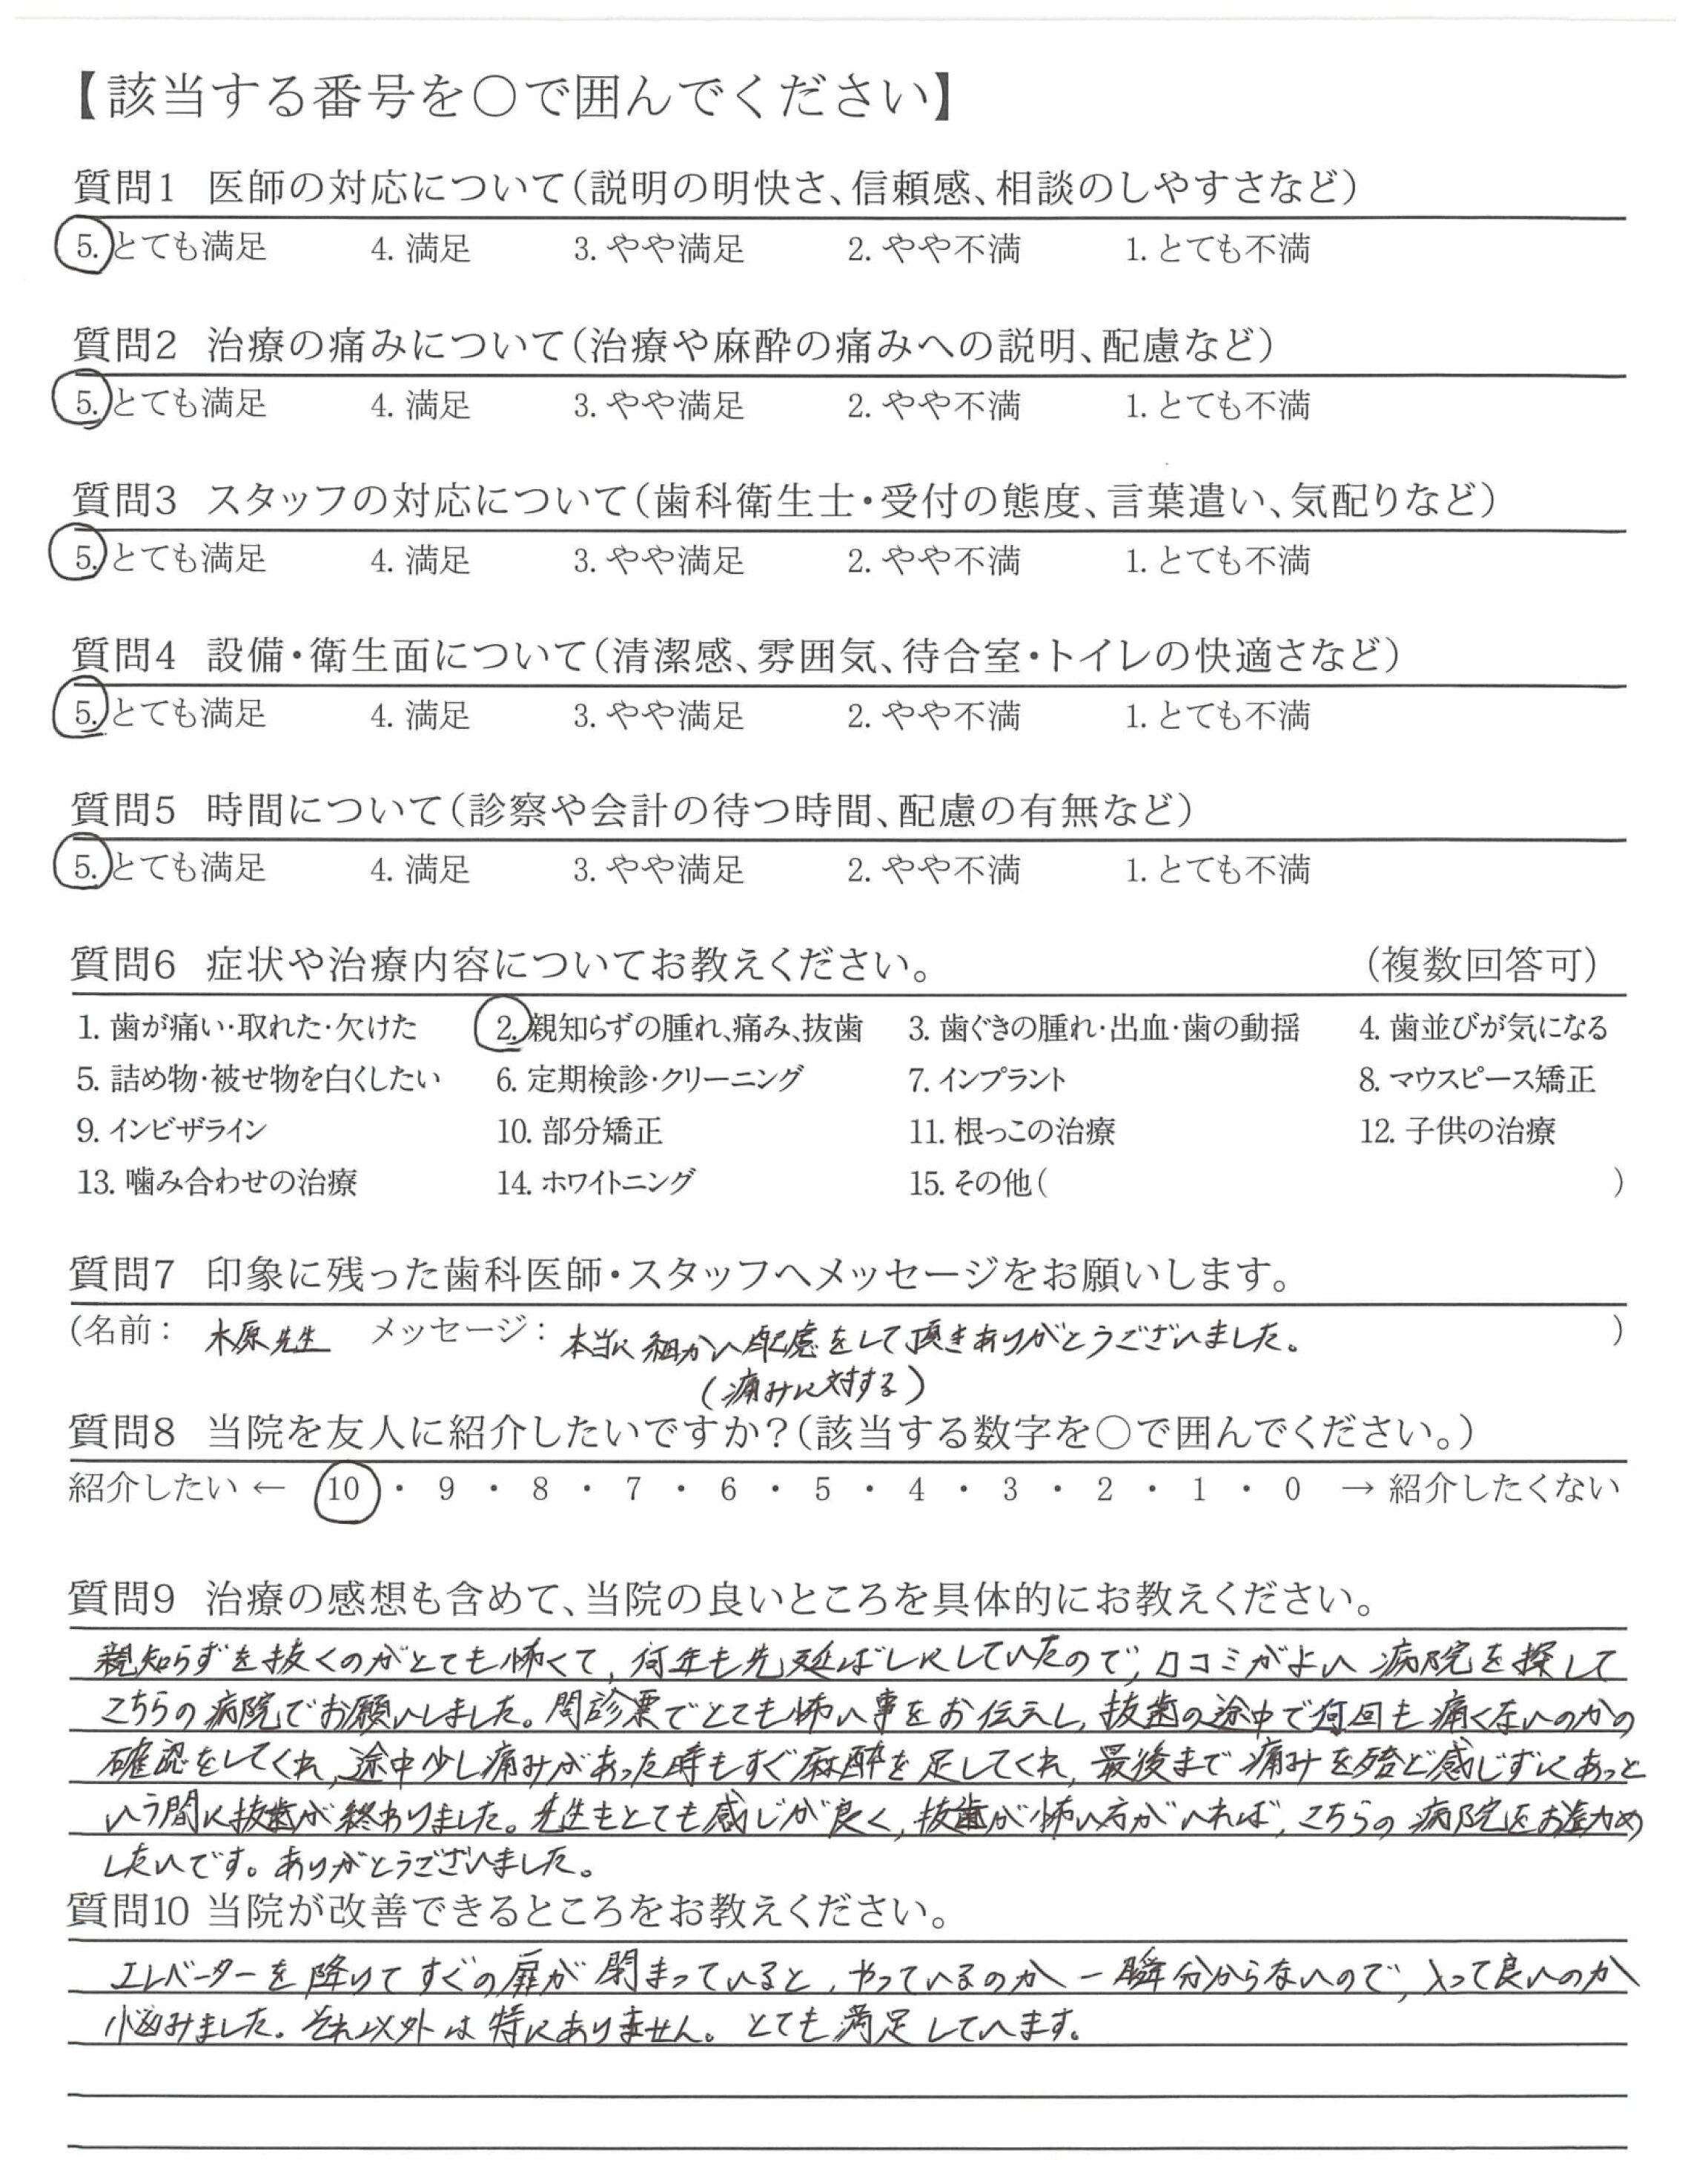 【該当する番号を〇で囲んでください】
質問1 医師の対応について(説明の明快さ、信頼感、相談のしやすさなど)
5. とても満足 4. 満足 3. やや満足 2. やや不満 1. とても不満
質問2 治療の痛みについて(治療や麻酔の痛みへの説明、配慮など)
5. とても満足 4. 満足 3. やや満足 2. やや不満 1. とても不満
質問3 スタッフの対応について(歯科衛生士・受付の態度、言葉遣い、気配りなど)
5. とても満足 4. 満足 3. やや満足 2. やや不満 1. とても不満
質問4 設備・衛生面について(清潔感、雰囲気、待合室・トイレの快適さなど)
5. とても満足 4. 満足 3. やや満足 2. やや不満 1. とても不満
質問5 時間について(診察や会計の待つ時間、配慮の有無など)
5. とても満足 4. 満足 3. やや満足 2. やや不満 1. とても不満
質問6 症状や治療内容についてお教えください。 (複数回答可)
1. 歯が痛い・取れた・欠けた 2. 親知らずの腫れ、痛み、抜歯 3. 歯ぐきの腫れ・出血・歯の動揺 4. 歯並びが気になる
5. 詰め物・被せ物を白くしたい 6. 定期検診・クリーニング 7. インプラント 8. マウスピース矯正
9. インビザライン 10. 部分矯正 11. 根っこの治療 12. 子供の治療
13. 噛み合わせの治療 14. ホワイトニング 15. その他( )
質問7 印象に残った歯科医師・スタッフへメッセージをお願いします。
(名前: 木原先生 メッセージ: 本当に細かい配慮をして頂きありがとうございました。 )
(痛みに対する)
質問8 当院を友人に紹介したいですか?(該当する数字を〇で囲んでください。)
紹介したい ← 10 ・ 9 ・ 8 ・ 7 ・ 6 ・ 5 ・ 4 ・ 3 ・ 2 ・ 1 ・ 0 → 紹介したくない
質問9 治療の感想も含めて、当院の良いところを具体的にお教えください。
親知らずを抜くのがとても怖くて、何年も先延ばしにしていたので、口コミがよい病院を探して
こちらの病院でお願いしました。問診票でとても怖い事をお伝えし、抜歯の途中で何回も痛くないのかの
確認をしてくれ、途中少し痛みがあった時もすぐ麻酔を足してくれ、最後まで痛みを殆ど感じずにあっと
いう間に抜歯が終わりました。先生もとても感じが良く、抜歯が怖い方がいれば、こちらの病院をお薦め
したいです。ありがとうございました。
質問10 当院が改善できるところをお教えください。
エレベーターを降りてすぐの扉が閉まっていると、やっているのか一瞬分からないので、入って良いのか
悩みました。それ以外は特にありません。とても満足しています。